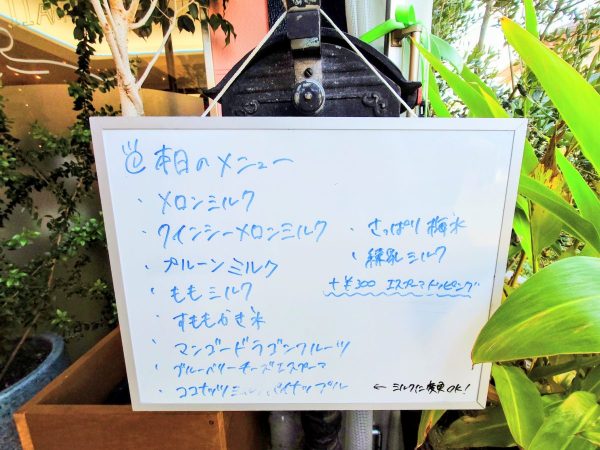 本日のメニュー
・メロンミルク
・クインシーメロンミルク
・プルーンミルク
・ももミルク
・すももかき氷
・マンゴードラゴンフルーツ
・ブルーベリーチーズエスプーマ
・ココナッツミルクパイナップル
・さっぱり梅氷
・練乳ミルク
+¥300 エスプーマトッピング
← ミルクに変更OK!